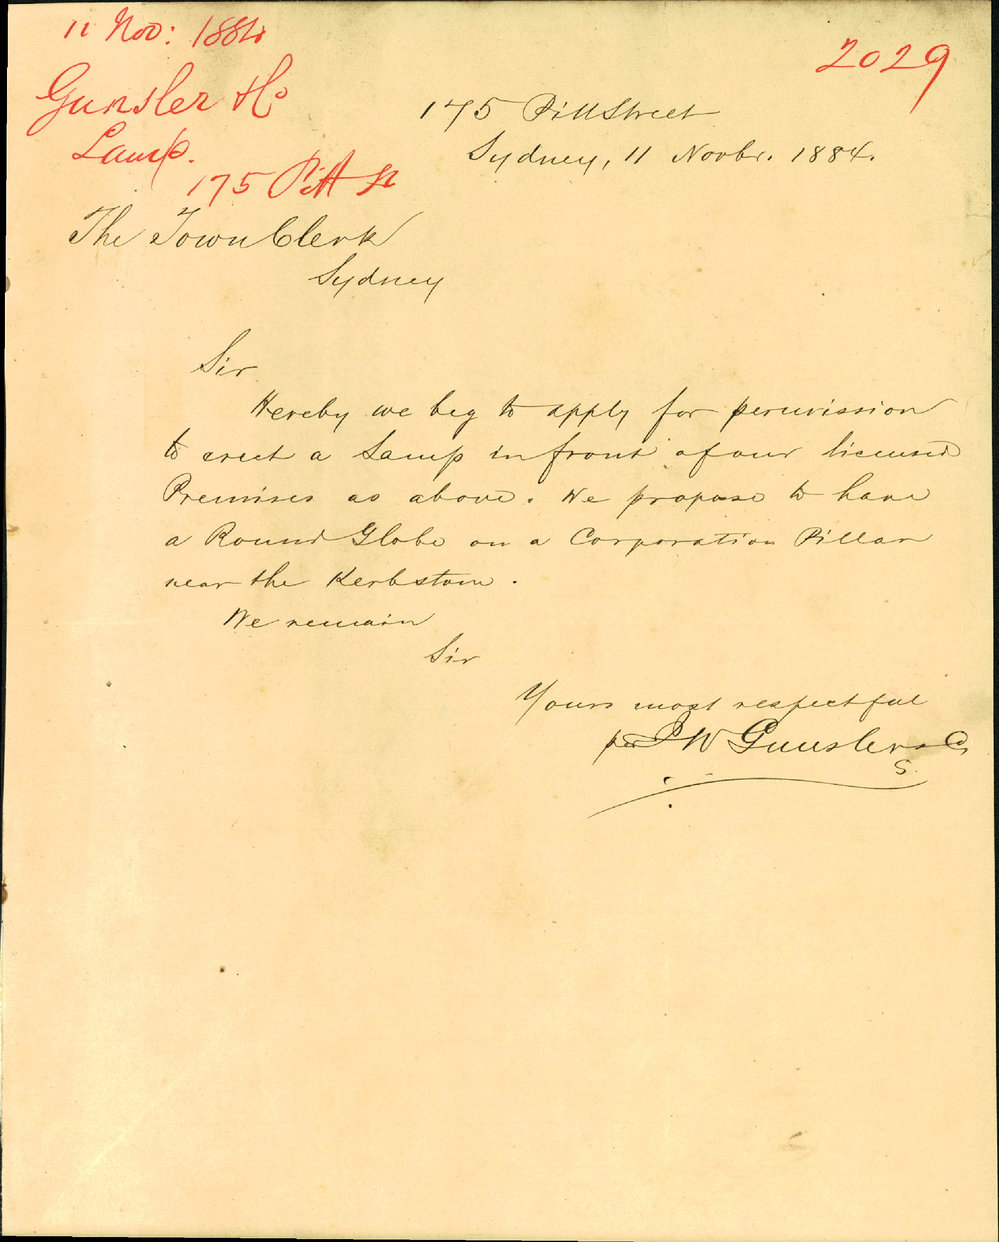 11 Nov: 1884
2029
Gunsler & Co
Lamp.
175 Pitt St
175 Pitt Street
Sydney, 11 Novbr. 1884.
The Town Clerk
Sydney
Sir
Hereby we beg to apply for permission
to erect a Lamp in front of our licensed
Premises as above. We propose to have
a Round Globe on a Corporation Pillar
near the Kerbstone.
We remain
Sir
Yours most respectful
per J W Gunsler & Co
S.